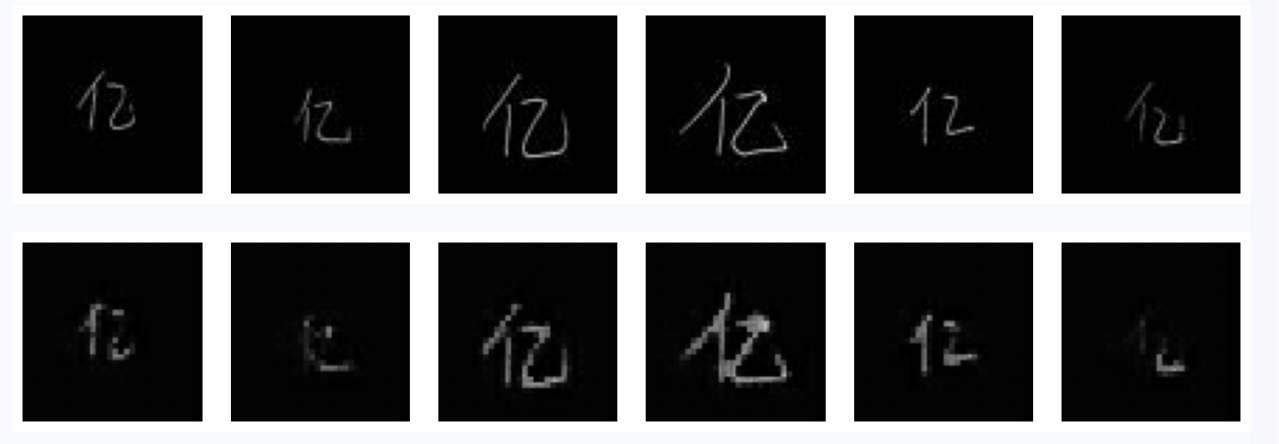 亿 亿 亿 亿 亿 亿
亿 亿 亿 亿 亿 亿